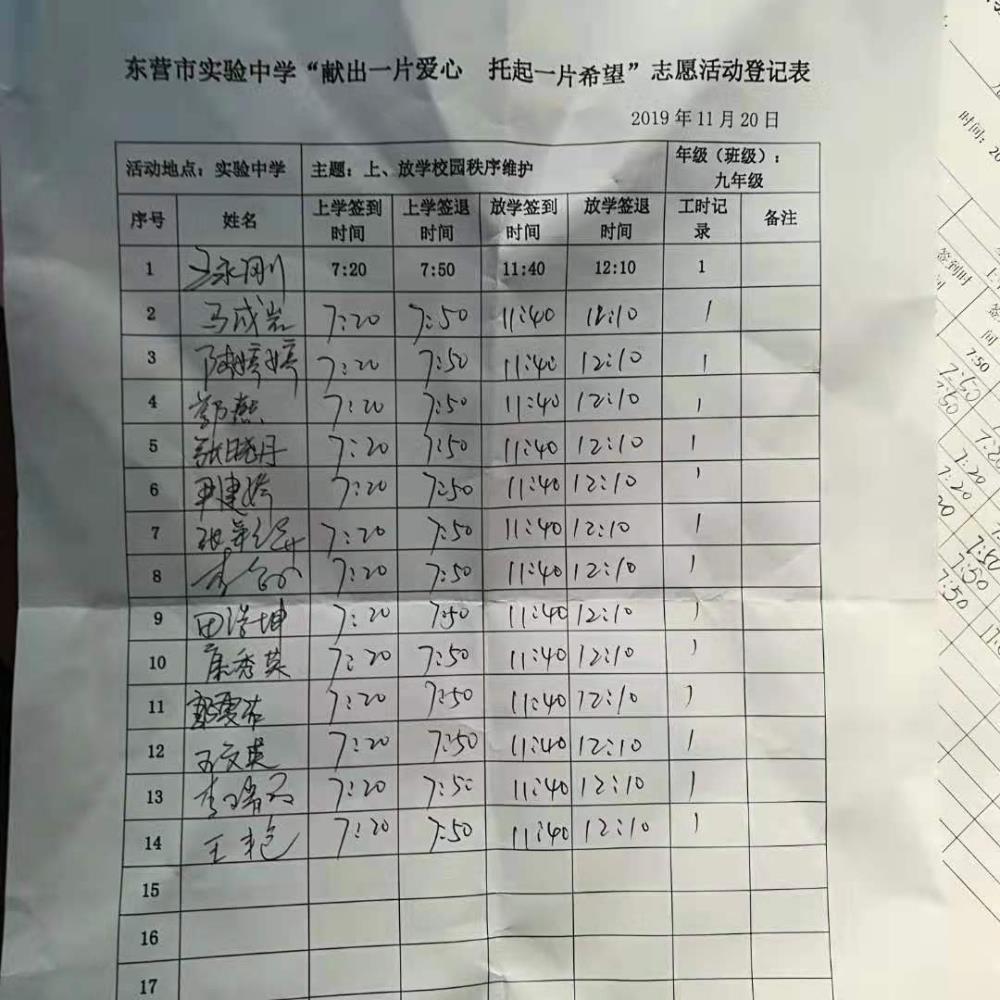 东营市实验中学“献出一片爱心 托起一片希望”志愿活动登记表
2019年11月20日
活动地点：实验中学 主题：上、放学校园秩序维护 年级（班级）：九年级
序号 姓名 上学签到时间 上学签退时间 放学签到时间 放学签退时间 工时记录 备注
1 王永刚 7:20 7:50 11:40 12:10 1
2 马成岩 7:20 7:50 11:40 12:10 1
3 陈婷婷 7:20 7:50 11:40 12:10 1
4 7:20 7:50 11:40 12:10 1
5 张晓丹 7:20 7:50 11:40 12:10 1
6 尹建 7:20 7:50 11:40 12:10 1
7 7:20 7:50 11:40 12:10 1
8 7:20 7:50 11:40 12:10 1
9 田浩坤 7:20 7:50 11:40 12:10 1
10 秀英 7:20 7:50 11:40 12:10 1
11 7:20 7:50 11:40 12:10 1
12 文英 7:20 7:50 11:40 12:10 1
13 李 7:20 7:50 11:40 12:10 1
14 王艳 7:20 7:50 11:40 12:10 1
15
16
17
时间：20
签到时
间
7:50
7:50
7:50
7:20
7:20
7:50
7:50
7:50